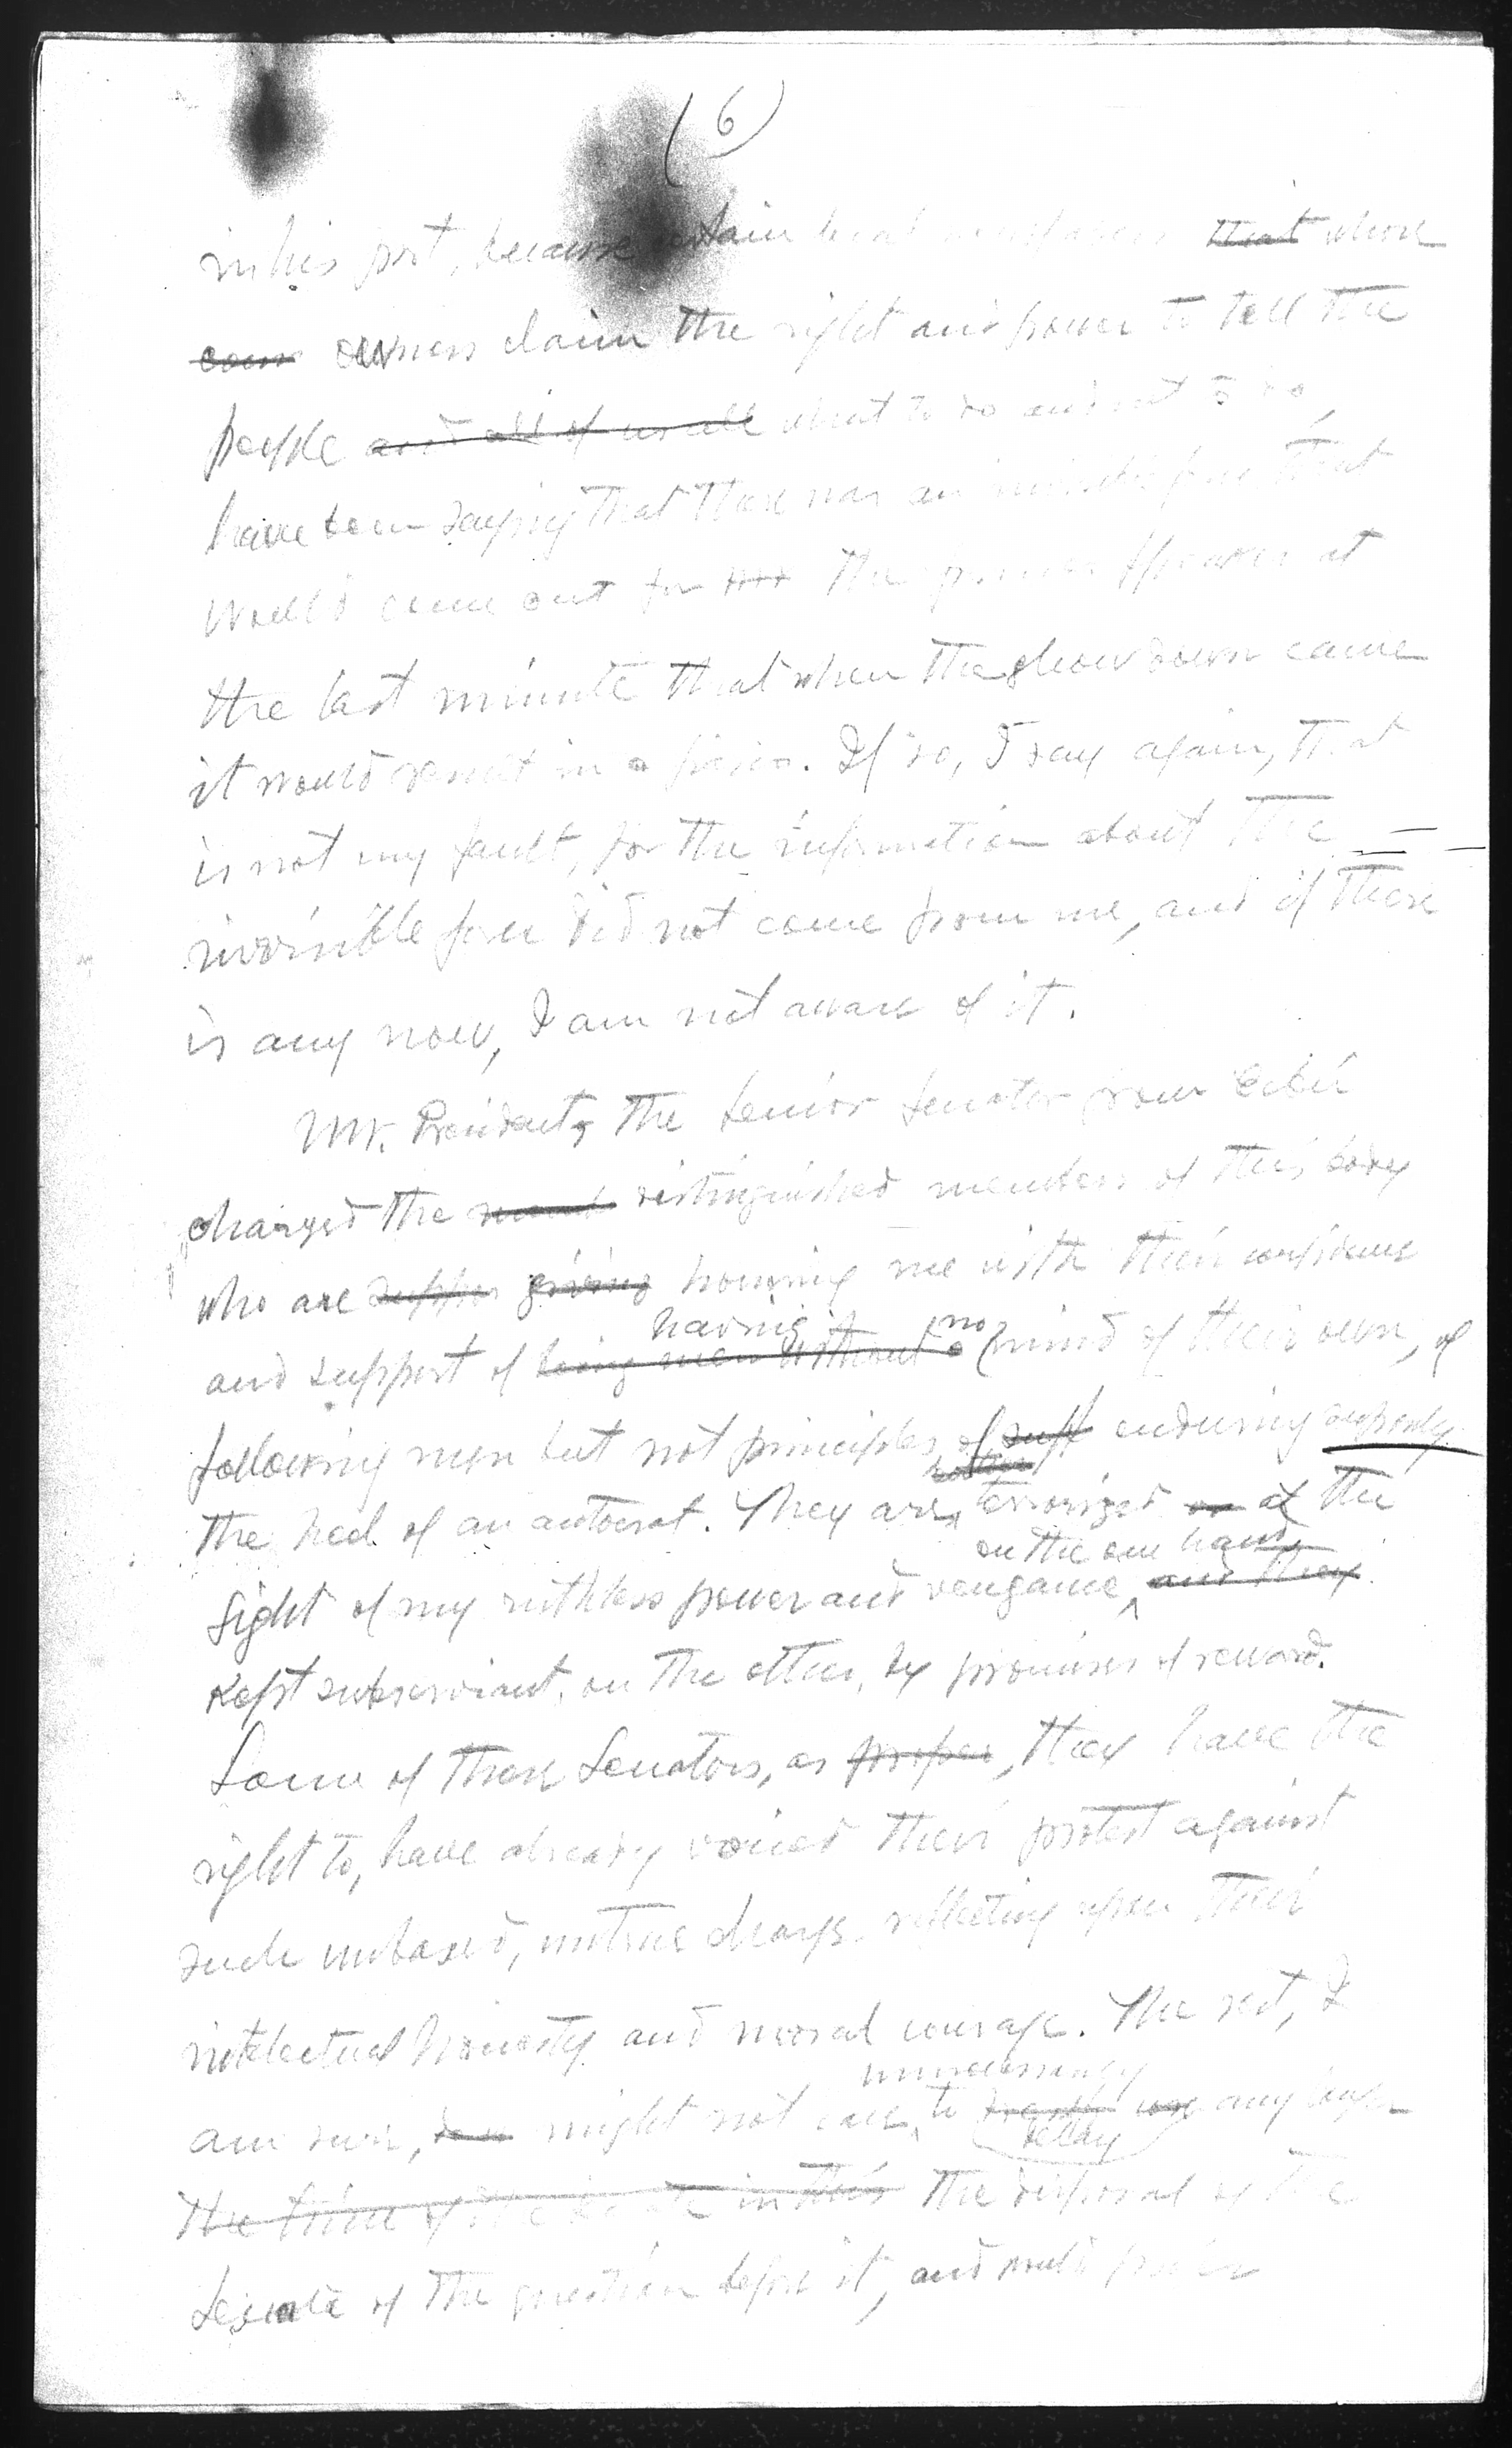 (6)
in his part, because certain local newspapers that whose
com owners claim the right and power to tell the
people and all of us all what to do and not to do,
have been saying that there was an invisible force that
would come out for the former Speaker at
the last minute that when the showdown came
it would result in a fiasco. If so, I say again, that
is not my fault, for the information about the
invisible force did not come from me, and if there
is any now, I am not aware of it.
Mr. President, the Senior Senator from Cebú
charged the distinguished members of this body
who are suppor giving honoring me with their confidence
and support of being men without a having no mind of their own, of
following men but not principles, of suff enduring supinely
the heel of an autocrat. They are terrorized or at the
sight of my ruthless power and vengance, on the one hand, and they
kept subservient, on the other, by promises of reward.
Some of these Senators, as proper, they have the
right to, have already voiced their protest against
such unbased, untrue charge reflecting upon their
intelectual honesty and moral courage. The rest, I
am sure, might not care unnecessarily to delay any longer
the time of the Senate in this the disposal of the
Senate of the question before it, and would prefer